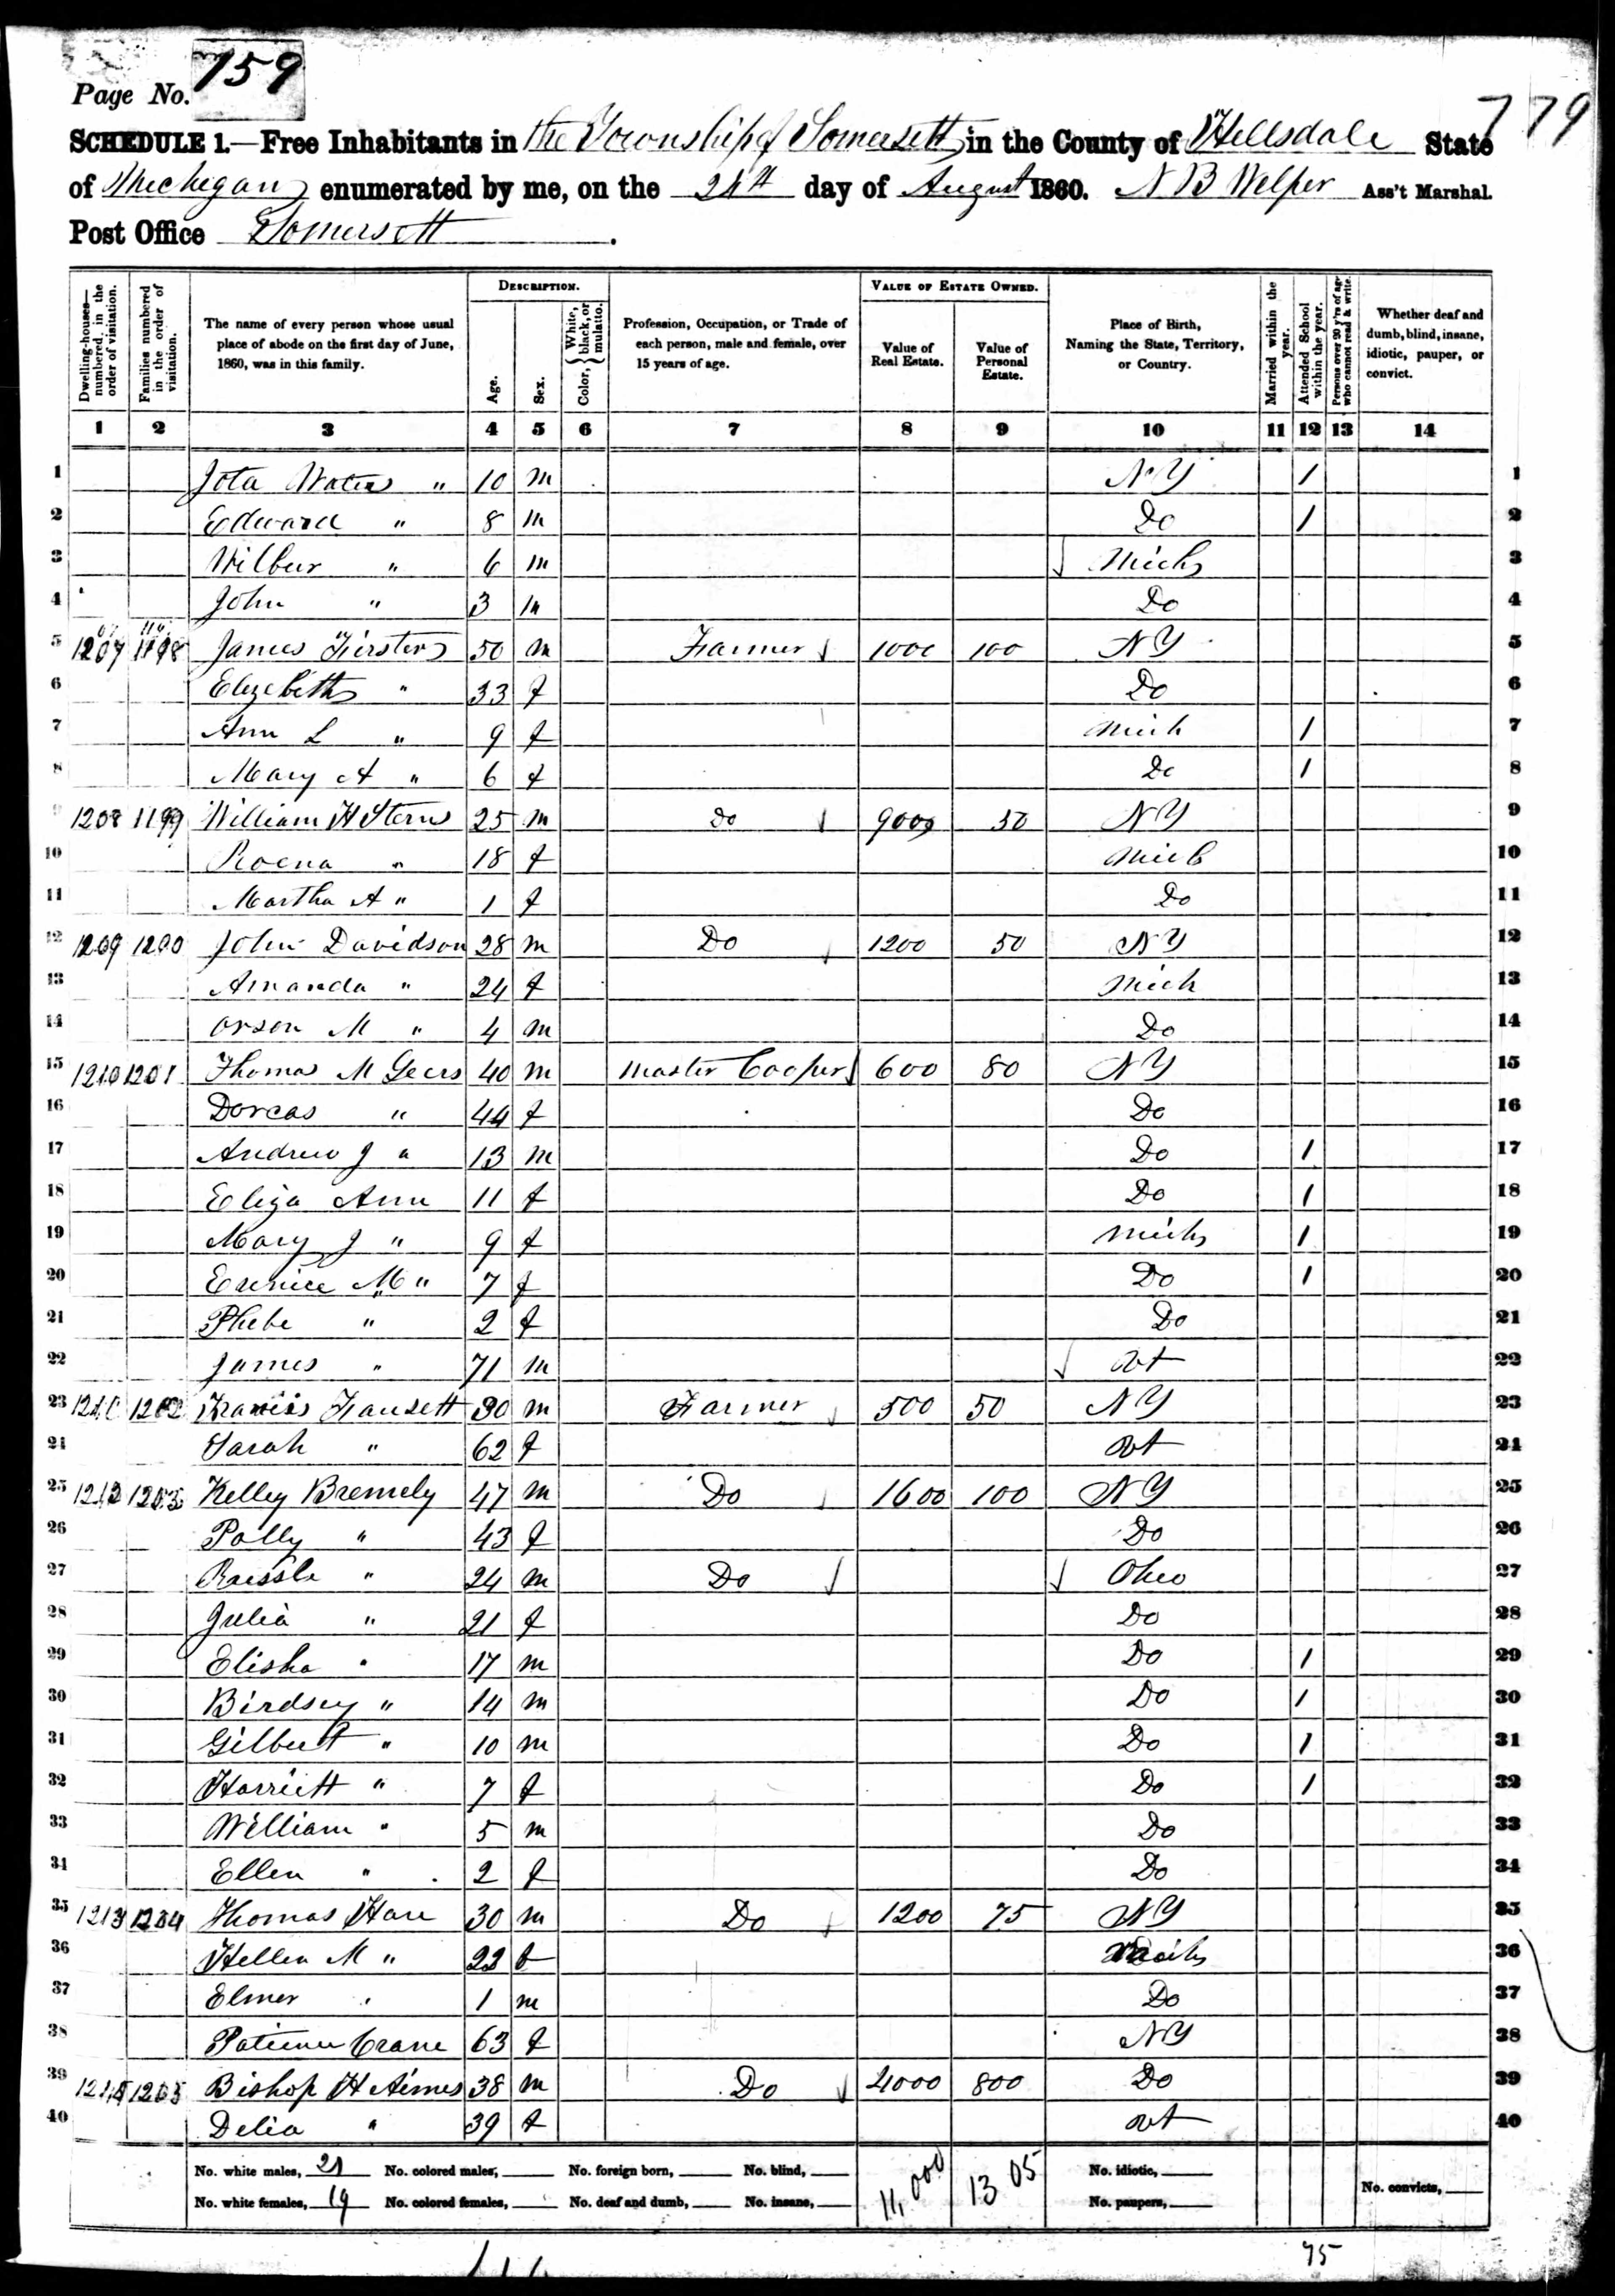 Page No. 759
779
SCHEDULE 1.—Free Inhabitants in the Township of Somersett in the County of Hillsdale State
of Michigan enumerated by me, on the 24th day of August 1860. N B Welper Ass't Marshal.
Post Office Somersett.
DESCRIPTION. VALUE OF ESTATE OWNED.
Dwelling-houses—numbered in the order of visitation. Families numbered in the order of visitation. The name of every person whose usual place of abode on the first day of June, 1860, was in this family. Age. Sex. Color, { White, black, or mulatto. Profession, Occupation, or Trade of each person, male and female, over 15 years of age. Value of Real Estate. Value of Personal Estate. Place of Birth, Naming the State, Territory, or Country. Married within the year. Attended School within the year. Persons over 20 y'rs of age who cannot read & write. Whether deaf and dumb, blind, insane, idiotic, pauper, or convict.
1 2 3 4 5 6 7 8 9 10 11 12 13 14
1 Jota Waters " 10 m NY 1 1
2 Edward " 8 m Do 1 2
3 Wilbur " 6 m Mich 3
4 John " 3 m Do 4
5 1207 1198 James 50 m Farmer 1000 100 NY 5
6 Elizebeth " 33 f Do 6
7 Ann L " 9 f Mich 1 7
8 Mary A " 6 f Do 1 8
9 1208 1199 William H Sterns 25 m Do 9000 50 NY 9
10 Roena " 18 f Mich 10
11 Martha A " 1 f Do 11
12 1209 1200 John Davidson 28 m Do 1200 50 NY 12
13 Amanda " 24 f Mich 13
14 Orson M " 4 m Do 14
15 1210 1201 Thomas M Geers 40 m Master Cooper 600 80 NY 15
16 Dorcas " 44 f Do 16
17 Andrew J " 13 m Do 1 17
18 Eliza Ann 11 f Do 1 18
19 Mary J " 9 f Mich 1 19
20 Eunice M " 7 f Do 1 20
21 Phebe " 2 f Do 21
22 James " 71 m Vt 22
23 1202 Francis Fausett 30 m Farmer 500 50 NY 23
24 Sarah " 62 f Vt 24
25 1212 1203 Kelley Bremely 47 m Do 1600 100 NY 25
26 Polly " 43 f Do 26
27 " 24 m Do Ohio 27
28 Julia " 21 f Do 28
29 Elisha " 17 m Do 1 29
30 Birdsey " 14 m Do 1 30
31 Gilbert " 10 m Do 1 31
32 Harriett " 7 f Do 1 32
33 William " 5 m Do 33
34 Ellen " 2 f Do 34
35 1213 1204 Thomas Hare 30 m Do 1200 75 NY 35
36 Hellen M " 22 f Mich 36
37 Elmer " 1 m Do 37
38 Patience Crane 63 f NY 38
39 1205 Bishop H Aimes 38 m Do 4000 800 Do 39
40 Delia " 39 f Vt 40
No. white males, 21 No. colored males, No. foreign born, No. blind, 11,000 13 05 No. idiotic,
No. white females, 19 No. colored females, No. deaf and dumb, No. insane, No. paupers, No. convicts,
75